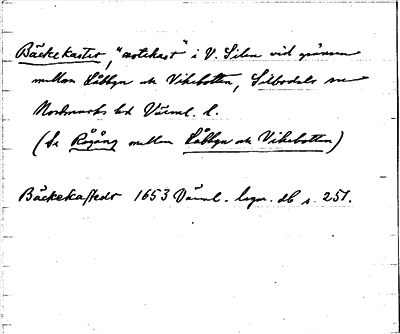 Bäckekaster, "notikast" i V. Silen vid gränsen
mellan Låbbyn och Vikebotten, Silbodals sn
Nordmarks hd Värml. l.
(Se Rågång mellan Låbbyn och Vikebotten)
Bäckekastedt 1653 Värml. lagm. db s. 251.